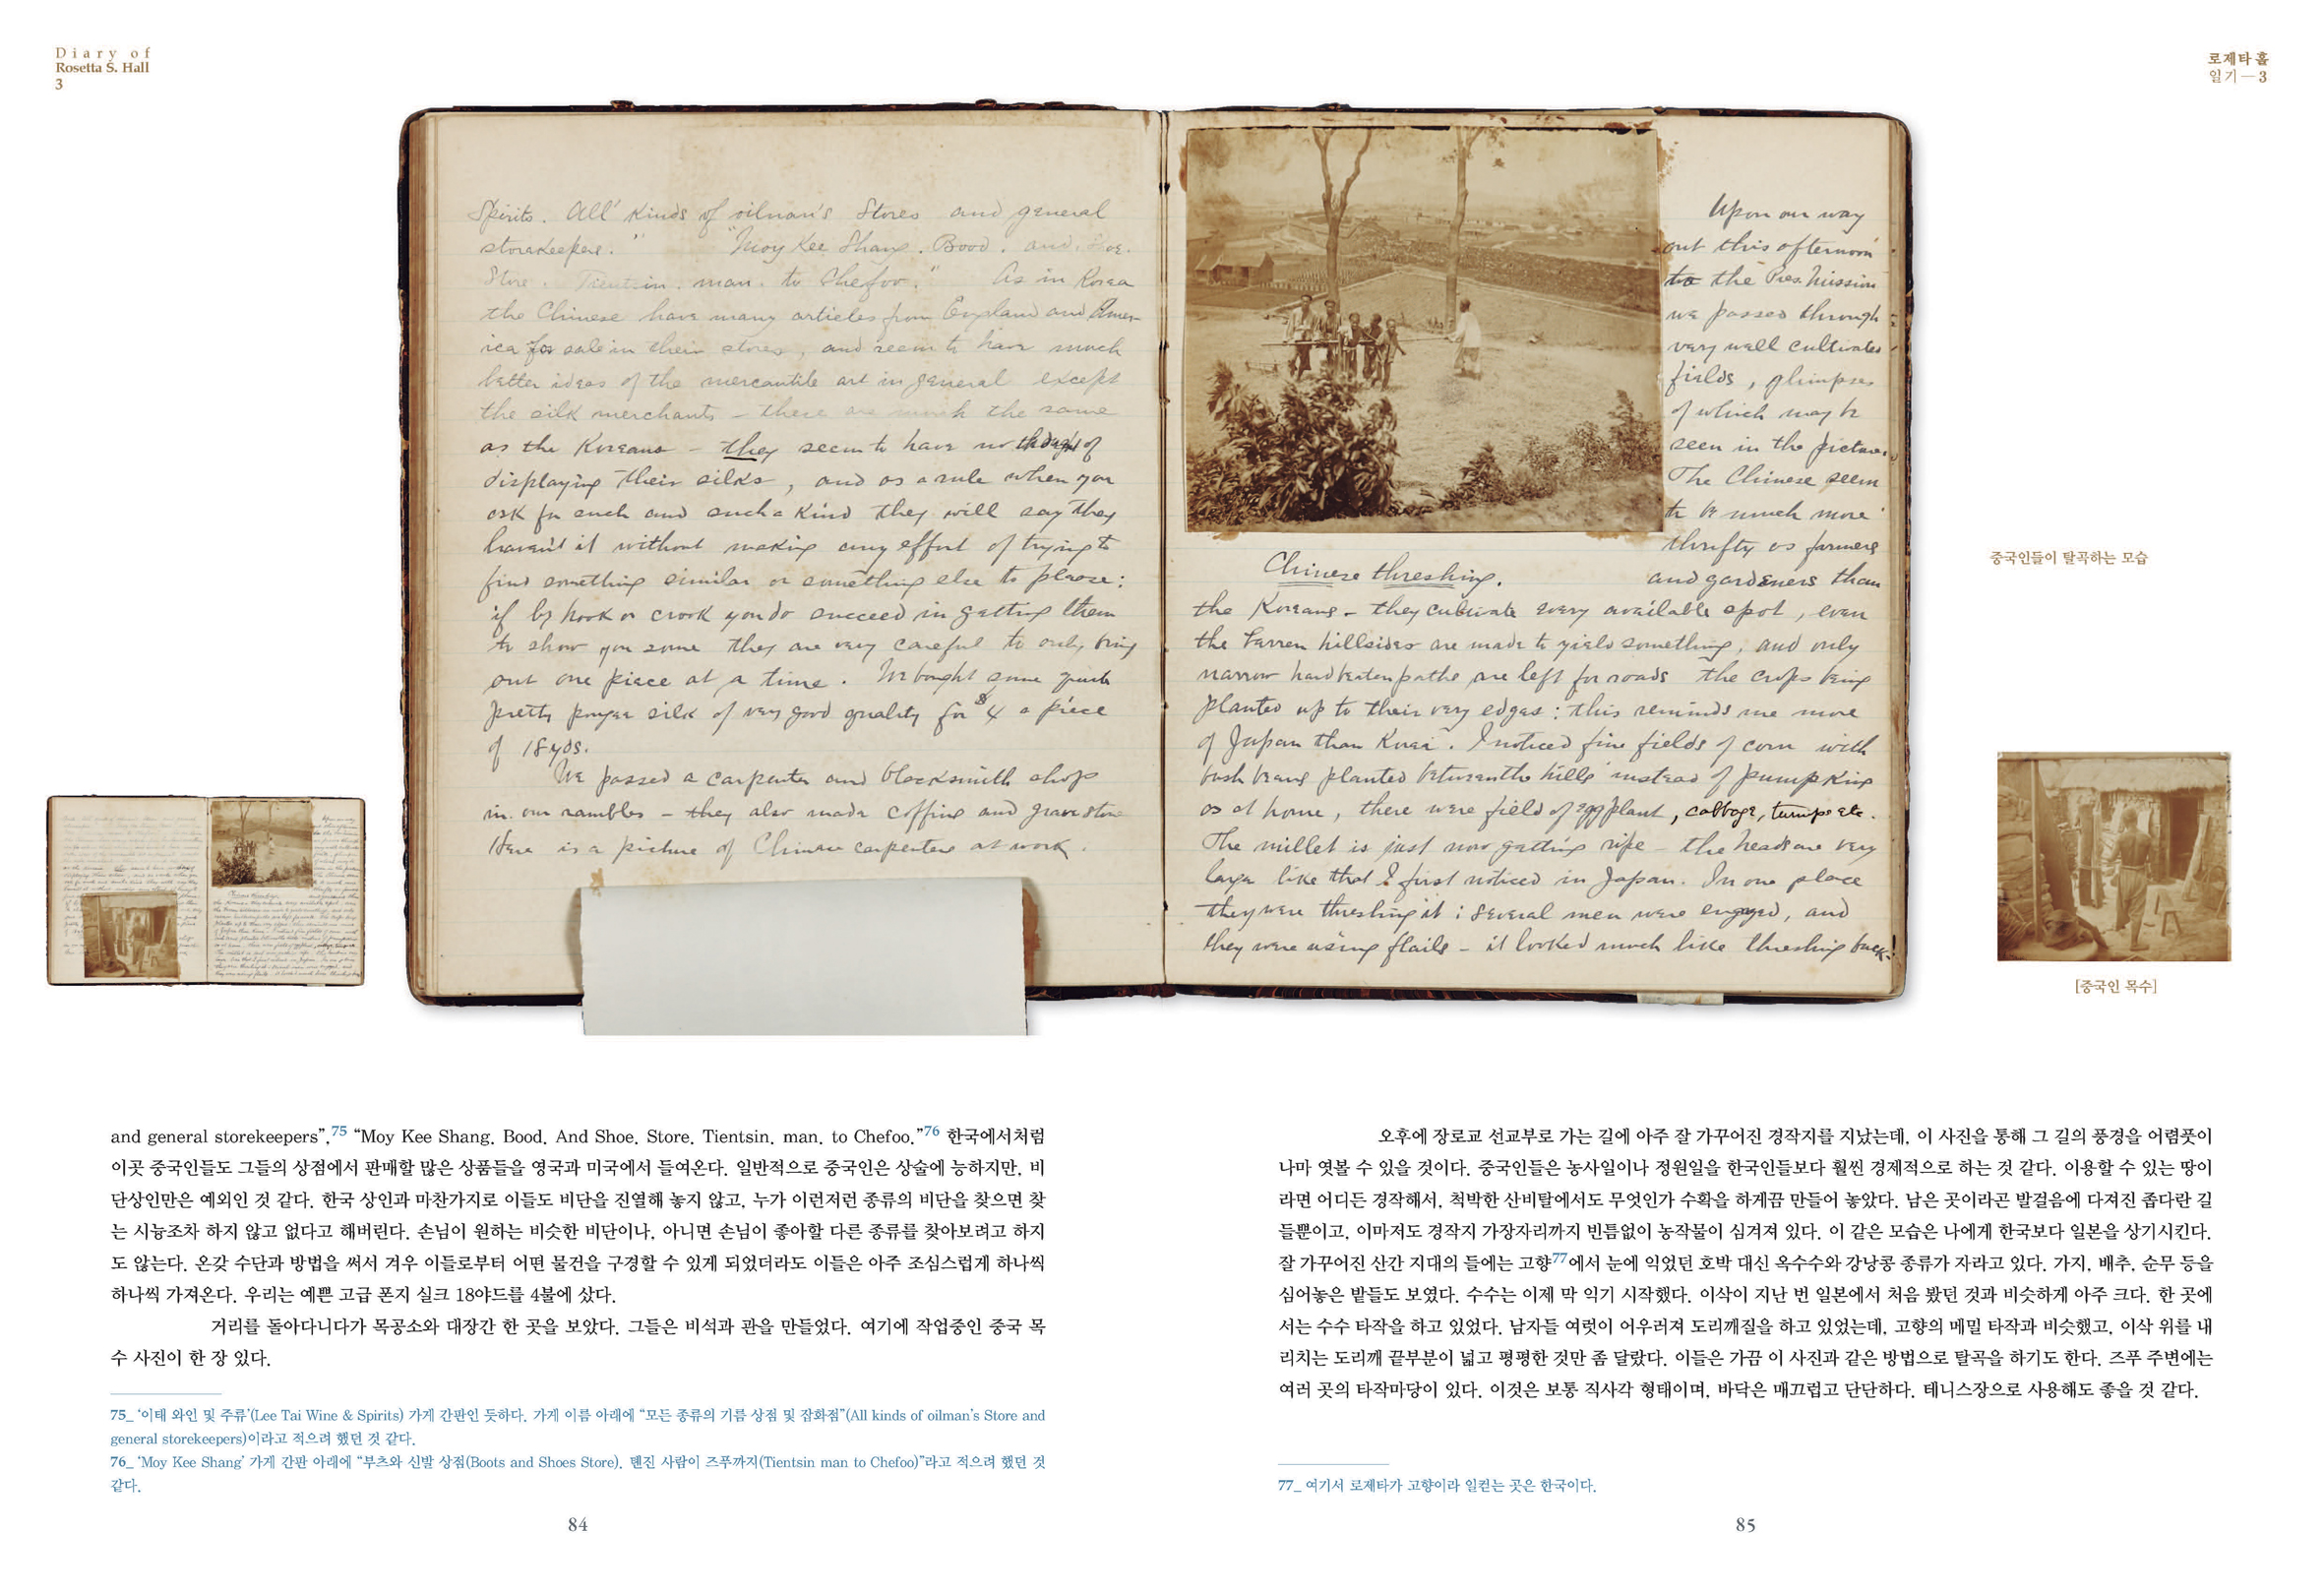 Diary of
Rosetta S. Hall
3
로제타 홀
일기 — 3
Spirits. All kinds of oilman's Stores and general
storekeepers." "Moy Kee Shang. Bood. and. Shoe.
Store. Tientsin. man. to Chefoo." As in Korea
the Chinese have many articles from England and Amer-
ica for sale in their stores, and seem to have much
better ideas of the mercantile art in general except
the silk merchants – these are much the same
as the Koreans – they seem to have no thought of
displaying their silks, and as a rule when you
ask for such and such a kind they will say they
haven't it without making any effort of trying to
find something similar or something else to please:
if by hook or crook you do succeed in getting them
to show you some they are very careful to only bring
out one piece at a time. We bought some quite
pretty pongee silk of very good quality for $4 a piece
of 18 yds.
We passed a carpenter and blacksmith shop
in our rambles – they also made coffins and gravestone
Here is a picture of Chinese carpenters at work.
Upon our way
out this afternoon
to the Pres. Mission
we passed through
very well cultivated
fields, glimpses
of which may be
seen in the picture.
The Chinese seem
to be much more
thrifty as farmers
Chinese threshing.
and gardeners than
the Koreans – they cultivate every available spot, even
the barren hillsides are made to yield something, and only
narrow hard beaten paths are left for roads the crops being
planted up to their very edges: this reminds me more
of Japan than Korea. I noticed fine fields of corn with
bush beans planted between the hills instead of pumpkins
as at home, there were field of eggplant, cabbage, turnips etc.
The millet is just now getting ripe – the heads are very
large like that I first noticed in Japan. In one place
they were threshing it; several men were engaged, and
they were using flails – it looked much like threshing buck-
중국인들이 탈곡하는 모습
[중국인 목수]
and general storekeepers”,75 “Moy Kee Shang. Bood. And Shoe. Store. Tientsin. man. to Chefoo.”76 한국에서처럼
이곳 중국인들도 그들의 상점에서 판매할 많은 상품들을 영국과 미국에서 들여온다. 일반적으로 중국인은 상술에 능하지만, 비
단상인만은 예외인 것 같다. 한국 상인과 마찬가지로 이들도 비단을 진열해 놓지 않고, 누가 이런저런 종류의 비단을 찾으면 찾
는 시늉조차 하지 않고 없다고 해버린다. 손님이 원하는 비슷한 비단이나, 아니면 손님이 좋아할 다른 종류를 찾아보려고 하지
도 않는다. 온갖 수단과 방법을 써서 겨우 이들로부터 어떤 물건을 구경할 수 있게 되었더라도 이들은 아주 조심스럽게 하나씩
하나씩 가져온다. 우리는 예쁜 고급 폰지 실크 18야드를 4불에 샀다.
거리를 돌아다니다가 목공소와 대장간 한 곳을 보았다. 그들은 비석과 관을 만들었다. 여기에 작업중인 중국 목
수 사진이 한 장 있다.
75_ ‘이태 와인 및 주류’(Lee Tai Wine & Spirits) 가게 간판인 듯하다. 가게 이름 아래에 “모든 종류의 기름 상점 및 잡화점”(All kinds of oilman’s Store and
general storekeepers)이라고 적으려 했던 것 같다.
76_ ‘Moy Kee Shang’ 가게 간판 아래에 “부츠와 신발 상점(Boots and Shoes Store). 텐진 사람이 즈푸까지(Tientsin man to Chefoo)”라고 적으려 했던 것
같다.
84
오후에 장로교 선교부로 가는 길에 아주 잘 가꾸어진 경작지를 지났는데, 이 사진을 통해 그 길의 풍경을 어렴풋이
나마 엿볼 수 있을 것이다. 중국인들은 농사일이나 정원일을 한국인들보다 훨씬 경제적으로 하는 것 같다. 이용할 수 있는 땅이
라면 어디든 경작해서, 척박한 산비탈에서도 무엇인가 수확을 하게끔 만들어 놓았다. 남은 곳이라곤 발걸음에 다져진 좁다란 길
들뿐이고, 이마저도 경작지 가장자리까지 빈틈없이 농작물이 심겨져 있다. 이 같은 모습은 나에게 한국보다 일본을 상기시킨다.
잘 가꾸어진 산간 지대의 들에는 고향77에서 눈에 익었던 호박 대신 옥수수와 강낭콩 종류가 자라고 있다. 가지, 배추, 순무 등을
심어놓은 밭들도 보였다. 수수는 이제 막 익기 시작했다. 이삭이 지난 번 일본에서 처음 봤던 것과 비슷하게 아주 크다. 한 곳에
서는 수수 타작을 하고 있었다. 남자들 여럿이 어우러져 도리깨질을 하고 있었는데, 고향의 메밀 타작과 비슷했고, 이삭 위를 내
리치는 도리깨 끝부분이 넓고 평평한 것만 좀 달랐다. 이들은 가끔 이 사진과 같은 방법으로 탈곡을 하기도 한다. 즈푸 주변에는
여러 곳의 타작마당이 있다. 이것은 보통 직사각 형태이며, 바닥은 매끄럽고 단단하다. 테니스장으로 사용해도 좋을 것 같다.
77_ 여기서 로제타가 고향이라 일컫는 곳은 한국이다.
85